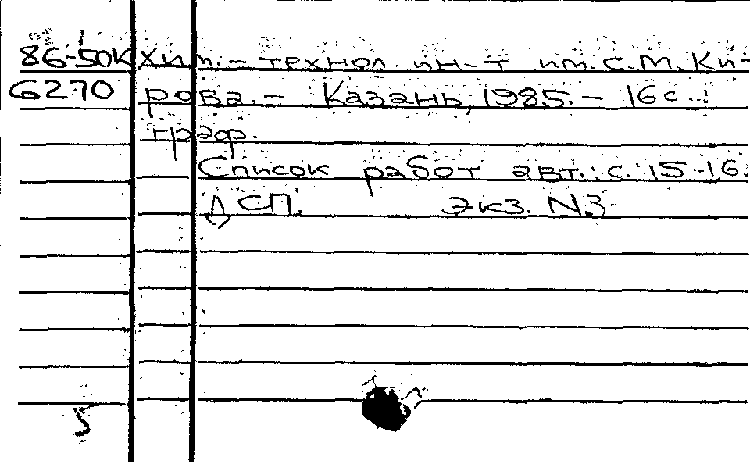 86-50К Хим.- технол. ин-т им. С.М. Ки-
6270 рова. - Казань, 1985. - 16 с.:
граф.
Список работ авт.: с. 15-16.
ДСП. Экз. N.3
5